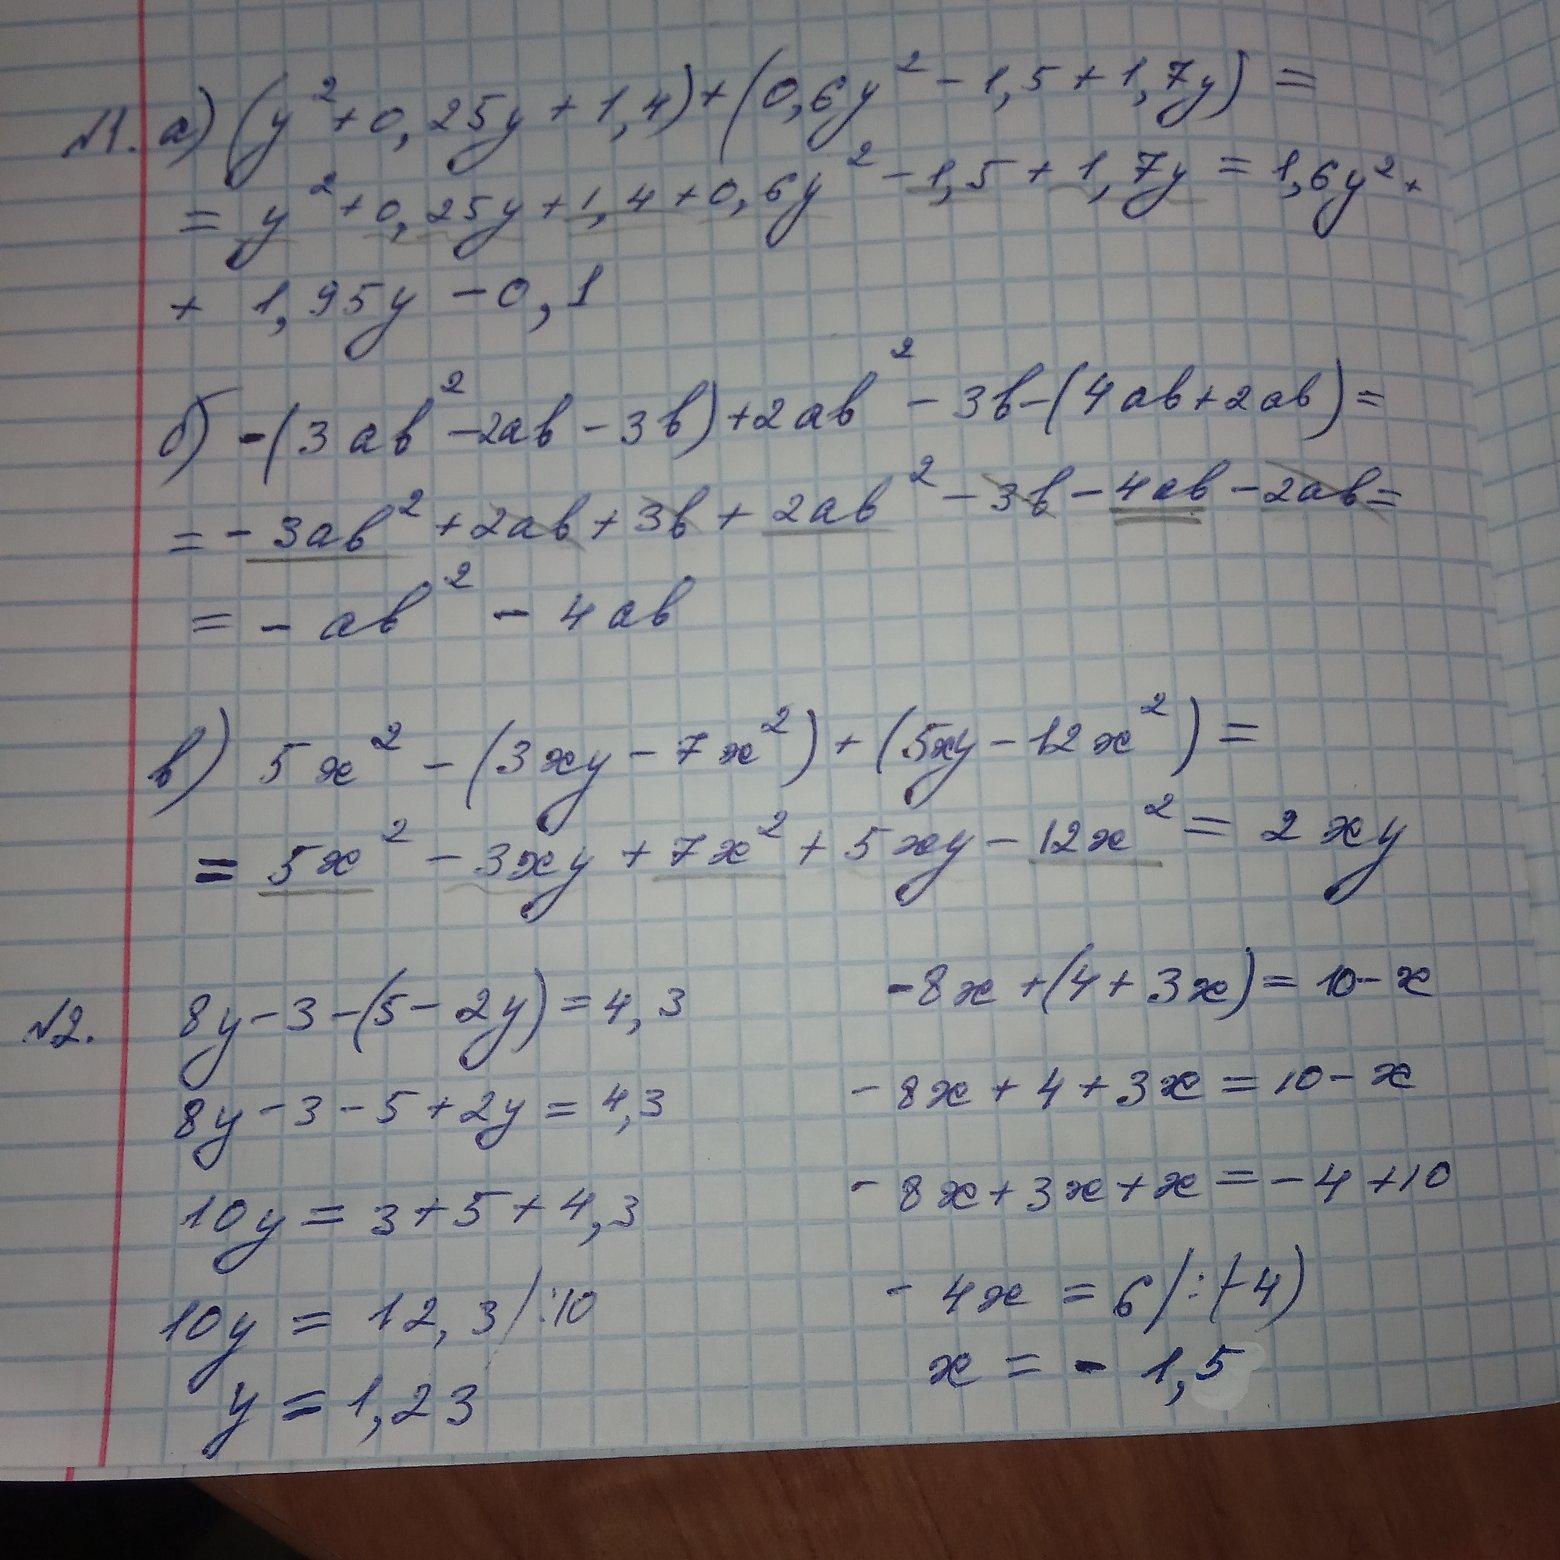 №1. а) (y²+0,25y+1,4)+(0,6y²-1,5+1,7y)=
= y²+0,25y+1,4+0,6y²-1,5+1,7y=1,6y²+
+ 1,95y-0,1
б) -(3ab²-2ab-3b)+2ab²-3b-(4ab+2ab)=
=-3ab²+2ab+3b+2ab²-3b-4ab-2ab=
=-ab²-4ab
в) 5x²-(3xy-7x²)+(5xy-12x²)=
= 5x²-3xy+7x²+5xy-12x²=2xy
№2. 8y-3-(5-2y)=4,3
8y-3-5+2y=4,3
10y=3+5+4,3
10y=12,3/:10
y=1,23
-8x+(4+3x)=10-x
-8x+4+3x=10-x
-8x+3x+x=-4+10
-4x=6/:(-4)
x=-1,5